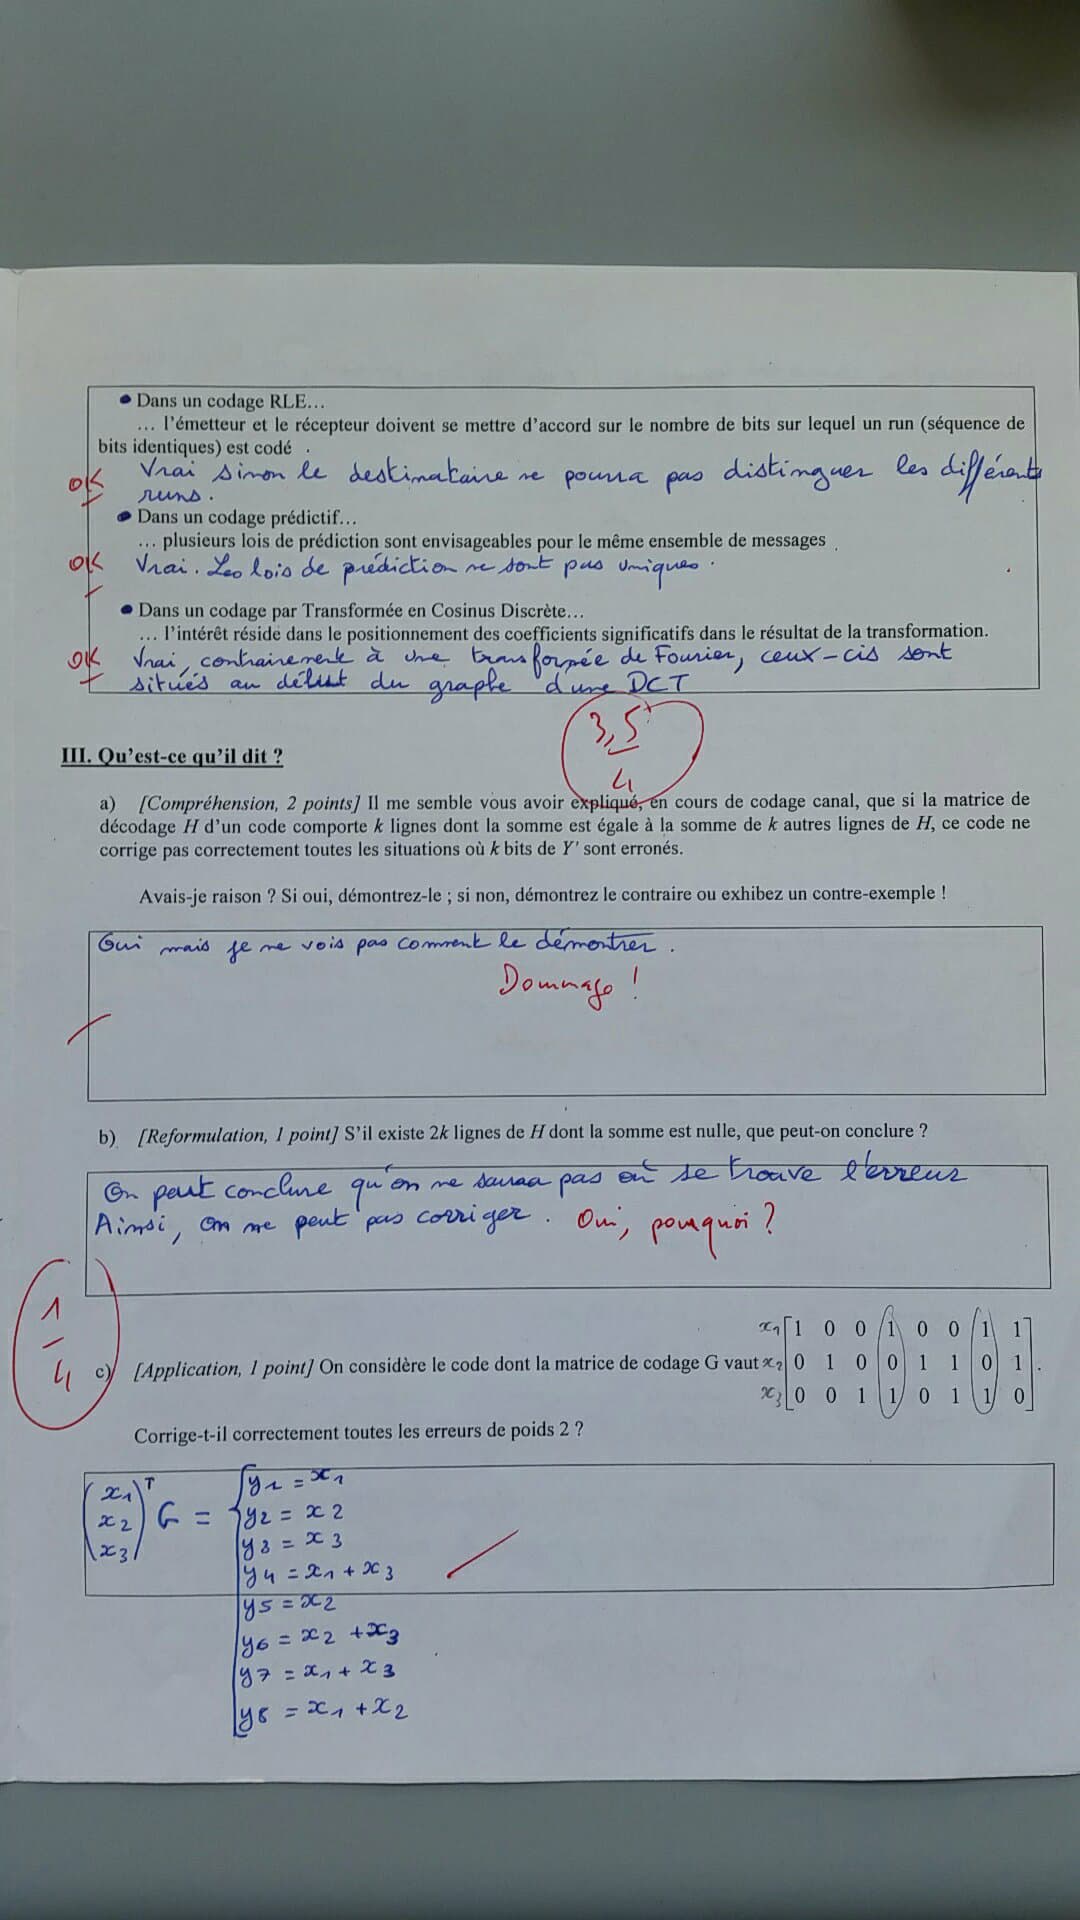 • Dans un codage RLE…
… l'émetteur et le récepteur doivent se mettre d'accord sur le nombre de bits sur lequel un run (séquence de
bits identiques) est codé .
OK Vrai sinon le destinataire ne pourra pas distinguer les différents
runs.
• Dans un codage prédictif…
… plusieurs lois de prédiction sont envisageables pour le même ensemble de messages .
OK Vrai. Les lois de prédiction ne sont pas uniques.
• Dans un codage par Transformée en Cosinus Discrète…
… l'intérêt réside dans le positionnement des coefficients significatifs dans le résultat de la transformation.
OK Vrai, contrairement à une transformée de Fourier, ceux-cis sont
situés au début du graphe d'une DCT
3,5
4
III. Qu'est-ce qu'il dit ?
a) [Compréhension, 2 points] Il me semble vous avoir expliqué, en cours de codage canal, que si la matrice de
décodage H d'un code comporte k lignes dont la somme est égale à la somme de k autres lignes de H, ce code ne
corrige pas correctement toutes les situations où k bits de Y' sont erronés.
Avais-je raison ? Si oui, démontrez-le ; si non, démontrez le contraire ou exhibez un contre-exemple !
Oui mais je ne vois pas comment le démontrer.
Dommage !
b) [Reformulation, 1 point] S'il existe 2k lignes de H dont la somme est nulle, que peut-on conclure ?
On peut conclure qu'on ne saura pas où se trouve l'erreur
Ainsi, on ne peut pas corriger. Oui, pourquoi ?
1
4
x1 [1 0 0 1 0 0 1 1]
c) [Application, 1 point] On considère le code dont la matrice de codage G vaut x2 0 1 0 0 1 1 0 1 .
x3 [0 0 1 1 0 1 1 0]
Corrige-t-il correctement toutes les erreurs de poids 2 ?
(x1 x2 x3)T G = {y1 = x1
y2 = x2
y3 = x3
y4 = x1 + x3
y5 = x2
y6 = x2 + x3
y7 = x1 + x3
y8 = x1 + x2